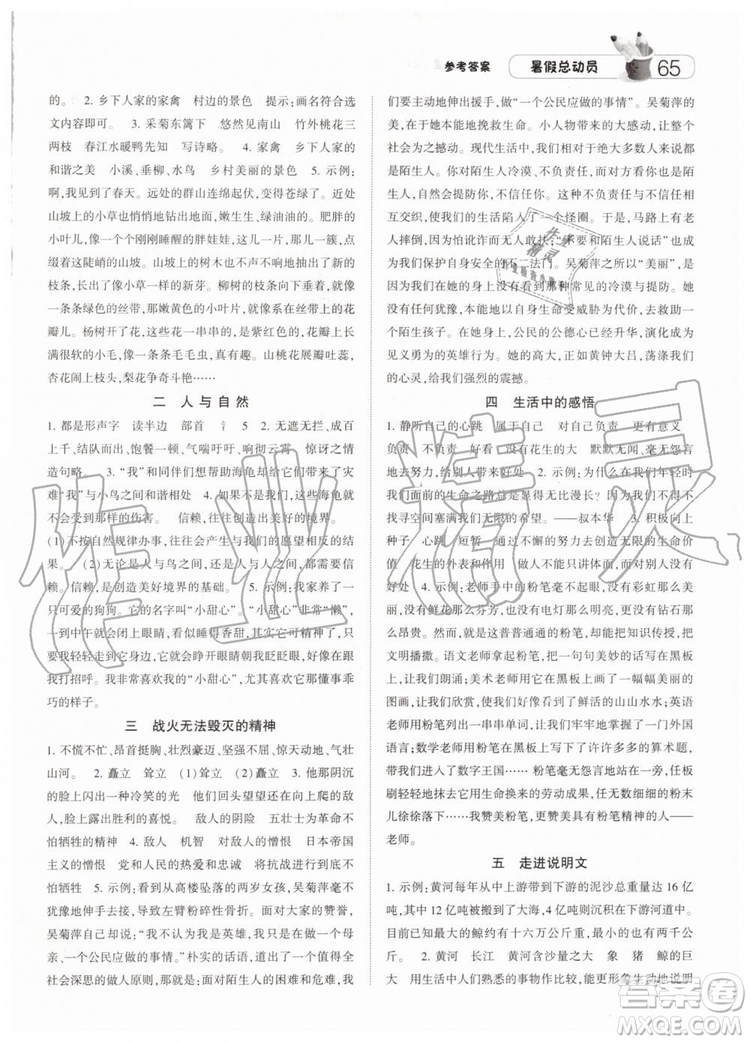 参考答案 暑假总动员 65
2. 乡下人家的家禽 村边的景色 提示：画名符合选
文内容即可。 3. 采菊东篱下 悠然见南山 竹外桃花三
两枝 春江水暖鸭先知 写诗略。 4. 家禽 乡下人家的
和谐之美 小溪、垂柳、水鸟 乡村美丽的景色 5. 示例：
啊，我见到了春天。远处的群山连绵起伏，变得苍绿了。近处
山坡上的小草也悄悄地钻出地面，嫩生生，绿油油的。肥胖的
小叶儿，像一个个刚刚睡醒的胖娃娃，这一片，那一簇，点缀
着这陡峭的山坡。山坡上的树木也不声不响地抽出新的枝
条，长出了像小草一样的新芽。柳树的枝条向下垂着，就像一
条条线挂在树上。那嫩黄色的小叶片，就像一串串的花
瓣儿。杨树花一串一串的，是紫红色的，好像一串串要成熟的、
长满很软的小刺儿，掉在地上像一条毛毛虫。山桃花展瓣吐蕊，
杏花闹上枝头，梨花争奇斗艳……
二 人与自然
1. 都是形声字 读半边 部首 氵 5 2. 无遮无拦、成百
上千、结队而出、饱餐一顿、气喘吁吁、响彻云霄 惊讶之情
造句略。 3. “我”和同伴们想帮助这些海龟却造成了灾
难 “我”与小鸟之间和谐相处 4. 如果不是我们，这些海龟
那样的伤害。 信赖，往往创造出美好的境界。
(1) 不按自然规律办事，往往会与我们的愿望相反的结
果。 (2) 无论是人与鸟之间，还是人与人之间，都需要信
赖。信赖，是创造美好境界的基础。 5. 示例：我家养了一只
可爱的狗狗。它的名字叫“小甜心”。“小甜心”非常“懒”，
一到中午就闭上眼睛，看似睡得香甜，其实可精神了！只
要我轻轻走到它身边，它就半闭着眼睛看看我，好像在跟我
打招呼。我喜欢我家的“小甜心”，喜欢它那既顽皮又乖
巧的样子。
三 战火无法毁灭的精神
1. 不慌不忙、昂首挺胸、壮烈豪迈、坚强不屈、惊天动地、气壮
山河。 2. 矗立 耸立 (1)耸立 (2)矗立 3. 他那阴沉
的脸上现出一种冷笑的光 他们回头望望还在向上爬的敌
人，脸上露出胜利的喜悦。 敌人的阴险 五壮士为革命不
怕牺牲的精神 4. 敌人 机智 对敌人的憎恨 日本帝国
主义的憎恨 中华民族、人民的热爱和忠诚 热爱祖国、不
怕牺牲 5. 示例：对从高楼坠落的两岁女孩，吴菊萍毫不
犹豫地冲过去，导致左臂粉碎性骨折。面对大家的赞誉，
吴菊萍真诚地说：“我不是英雄，只是做了一个公民应做
的事情。”“做一个公民应做的事情！”这句话，是值得我们
全社会深思的做人原则，那是面对陌生人的困难和危难，我
们要主动地伸出援手，做“一个公民应做的事情”。吴菊萍的
美，在于她本能地挽救生命。小人物带来的大感动，让整个
社会为之撼动。现代生活中，给绝大多数人带来冷漠的
是陌生人，自然会提防你、不信任你。而对方看你也是陌
生人，自然会提防你，不信任你。这种人与人之间的
相互交织，使我们的生活陷入了一个怪圈。于是，马路上有老
人摔倒，也因此而无人敢扶；“不要和陌生人说话”也成
为我们保护自身安全的不二法门。吴菊萍之所以“美丽”，是
因为她超越了陌生人之间的冷漠和提防，出于本能，
没有任何犹豫，加倍努力，在自身生命受威胁时抢救一个
陌生孩子。在她身上，公民的公德心已经升华，演化成为
见义勇为的英雄行为。她的高大，正如黄钟大吕，叩击我们
的心灵，给我们强烈的震撼。
四 生活中的感悟
1. 静听自己的心跳 属于自己 对自己负责 负责 不
负责 负责 没有花生的大 默默无闻、毫无怨言
地去努力，给别人带来好处 2. 示例：(1)在我们年轻的时候，
我们面前的生命之路总是显得多么无比漫长； (2)
寻找空间塞满无限的希望。——叔本华 3. 积极向上
种子 心跳 短暂 通过不懈的努力创造出无限的价
值 花生的作用 做人不能只讲体面，而应对别人有好
处 4. 示例：没有彩虹那么艳丽，没有彩笔那么
美丽，没有鲜花那么芬芳，也没有电灯那么明亮，更没有钻石那么
昂贵。然而，就是这普普通通的粉笔，为我们传授知识，把文
明播撒。语文老师用粉笔把一句句美妙的话语写在了黑板
上，让我们欣赏；美术老师用粉笔在黑板上画了一幅幅美丽的
图画，让我们欣赏，仿佛看到了鲜活的山山水水；英语
老师用粉笔写出一串串单词，让我们领略到了外国的
语言；数学老师用粉笔写出了一道道有趣的算术题，
带我们走进了数字王国……粉笔毫无怨言地工作，任黑板
刷轻轻地抹去用生命换来的一切，化作无数细细的粉
儿徐徐落下……我赞美粉笔，更赞美具有粉笔精神的人——
老师。
五 走进说明文
1. 示例：黄河每年从中上游带到下游的泥沙总量达16亿
吨，其中12亿吨被搬到了大海，4亿吨则沉积在下游河道中。
目前已知最大的鲸约有十六万公斤重，最小的也有两千公
斤。 2. 黄河 长江 黄河含沙量之大 象 猪 鲸的巨
大 用生活中人们熟悉的事物作比较，能更形象生动地说明